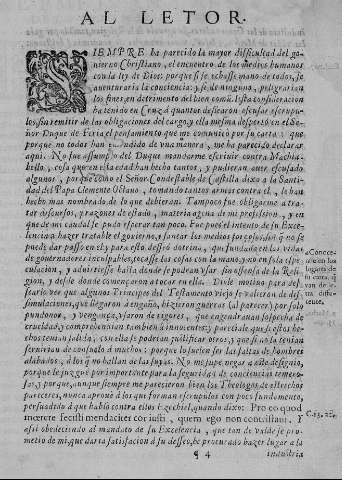 AL LETOR.
SIEMPRE ha parecido la mayor dificultad del go-
uierno Christiano, el encuentro de los medios humanos
con la ley de Dios: porque si se echasse mano de todos, se
auenturaria la conciencia: y si de ninguna, peligrarian
los fines, en detrimento del bien comũ. Esta consideracion
ha tenido en Cruz a quantos dessearon escusar escrupu-
los, sin remitir de las obligaciones del cargo, y ella mesma desperto en el Se-
ñor Duque de Feria el pensamiento que me comunicò por su carta: que
porque no todos han entendido de vna manera, me ha parecido declarar
aqui. No fue assumpto del Duque mandarme escriuir contra Machia-
bello, cosa que en esta edad han hecho tantos, y pudieran auer escusado
algunos: porque como el Señor Condestable de Castilla dixo a la Santi-
dad del Papa Clemente Octauo, tomando tantos armas contra el, le han
hecho mas nombrado de lo que debieran. Tampoco fue obligarme a tra-
tar discursos, y razones de estado, materia agena de mi profession, y en
que de mi caudal se pudo esperar tan poco. Fue pues el intento de su Exce-
lencia hazer tratable el gouierno, y sanear los medios por
pueda dar passo en el: y para esto desseò dotrina, que fundada en las vidas
de gouernadores inculpables, tocasse las cosas con la mano, y no sola espe-
culacion, y aduirtiesse hasta donde se podran vsar sin ofensa de la Reli-
gion, y desde donde començaron a tocar en ella. Diole motiuo para des-
searlo ver que algunos Principes del Testamento viejo se valieron de dis-
simulaciones, que llegaron a engaño, hizieron guerras (al parecer) por solo
pundonor, y vengança, vsaron de rigores, que engendrauan sospecha de
crueldad, y comprehendian tambien a innocentes: y pareciale que si estos he-
chos tenian salida, con ella se podrian justificar otros: y que si no la tenian
seruirian de consuelo a muchos: porque lo suelen ser las faltas de hombres
alabados, a los q̃ no hallan de las suyas. No me negue a este designio,
porque le juzguè por importante para la seguridad de conciencias temero-
sas: y porque, aunque siempre me parecieron bien los Theologos de estrechos
pareceres, nunca aprouè a los que forman escrupulos con poco fundamento,
persuadido a que habló contra ellos Ezechiel, quando dixo: Pro eo quod
mœrere fecisti mendaciter cor iusti, quem ego non contristaui. Y
assi obedeciendo al mandato de su Excelencia, que tan de valde se pro-
metio de mi que daria satisfacion a su desseo, he procurado hazer lugar a la
¶ 4
industria